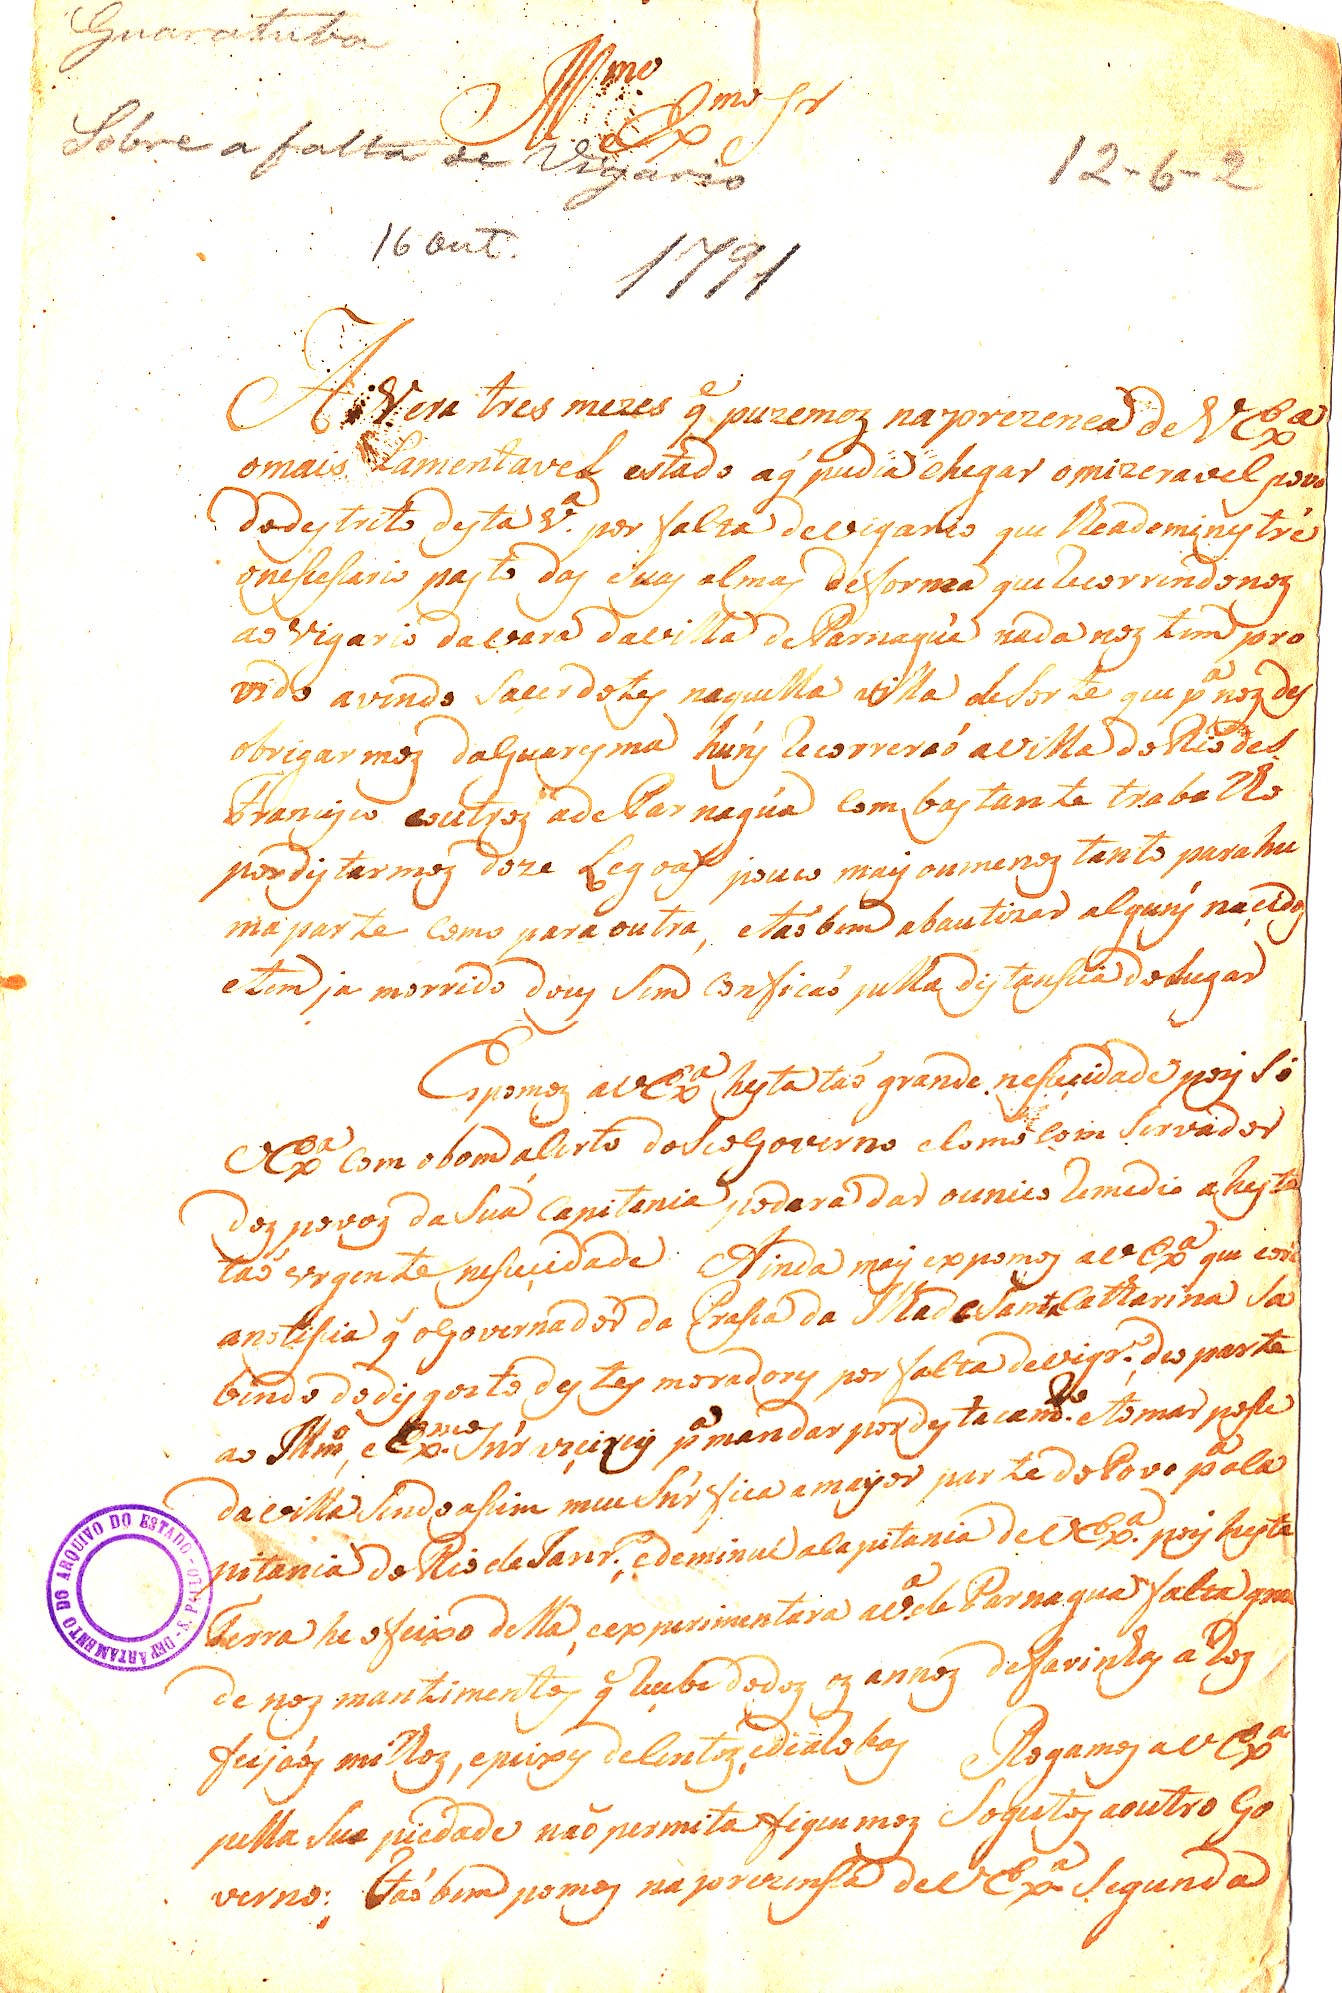 Guaratuba
Illmo
Exmo Sr
Sobre a falta de Vigario
12-6-2
16 Out.
1791
AVera tres mezes q̃ puzemoz naprezenca de V Exa
omais Lamentavel estado aq̃ pudia chegar omizeravel povo
dodestrito desta Va. por falta devigario que lheademinystre
onessesario pasto das suas almas desorma que Recorrendonoz
ao Vigario davara davilla de Parnaguá nada noz tem pro
vido avindo Sacerdotes naquella villa desorte que pa noz des
obrigarmoz daquaresma huns Recorreraó avilla do Rio des
Francisco eoutroz ade Parnagúa Com bastante trabalho
pordistarmoz doze Legoas pouco mais oumenoz tanto parahu
maparte Como paraoutra, etaóbem abautizar alguns nacidoz
etem ja morrido dous Sem Conficaó pella distansia dolugar
Expomoz aVExa hesta taó grande nessecidade pois Só
VExa Com obom aserto doSeoGoverno eComo Comservador
doz povoz da Sua Capitania podara dar ounico Remedio ahesta
taó urgente nessecidade Ainda mais expomos aVExa que
anotisia q̃ oGovernador da Prassa da Ilhade Santa Catharina Sa
bendo dodisgosto destes moradores por falta devigro. deo parte
ao Illmo, e Exmo Snr vicirei pa mandar pordestacamto. etomar posse
davilla Sendoassim meu Snr fica amayor parte doPovo pa aCa
pitania do Rio de Janro., edeminui aCapitania de VExa. pois hesta
Terra he ofeixo della, eexperimentara aVa de Parnagua falta gran
de noz mantimentos q̃ Recebe dodoz oz annoz defarinhas aRoz
feijaós milhoz, epeixes
Rogamos aVExa
pella Sua piedade naó permita fiquemoz Sogeitos aoutro Go
verno: Taóbem pomos naprezensa deVExa Segunda
DEPARTAMENTO DO ARQUIVO DO ESTADO - S. PAULO -